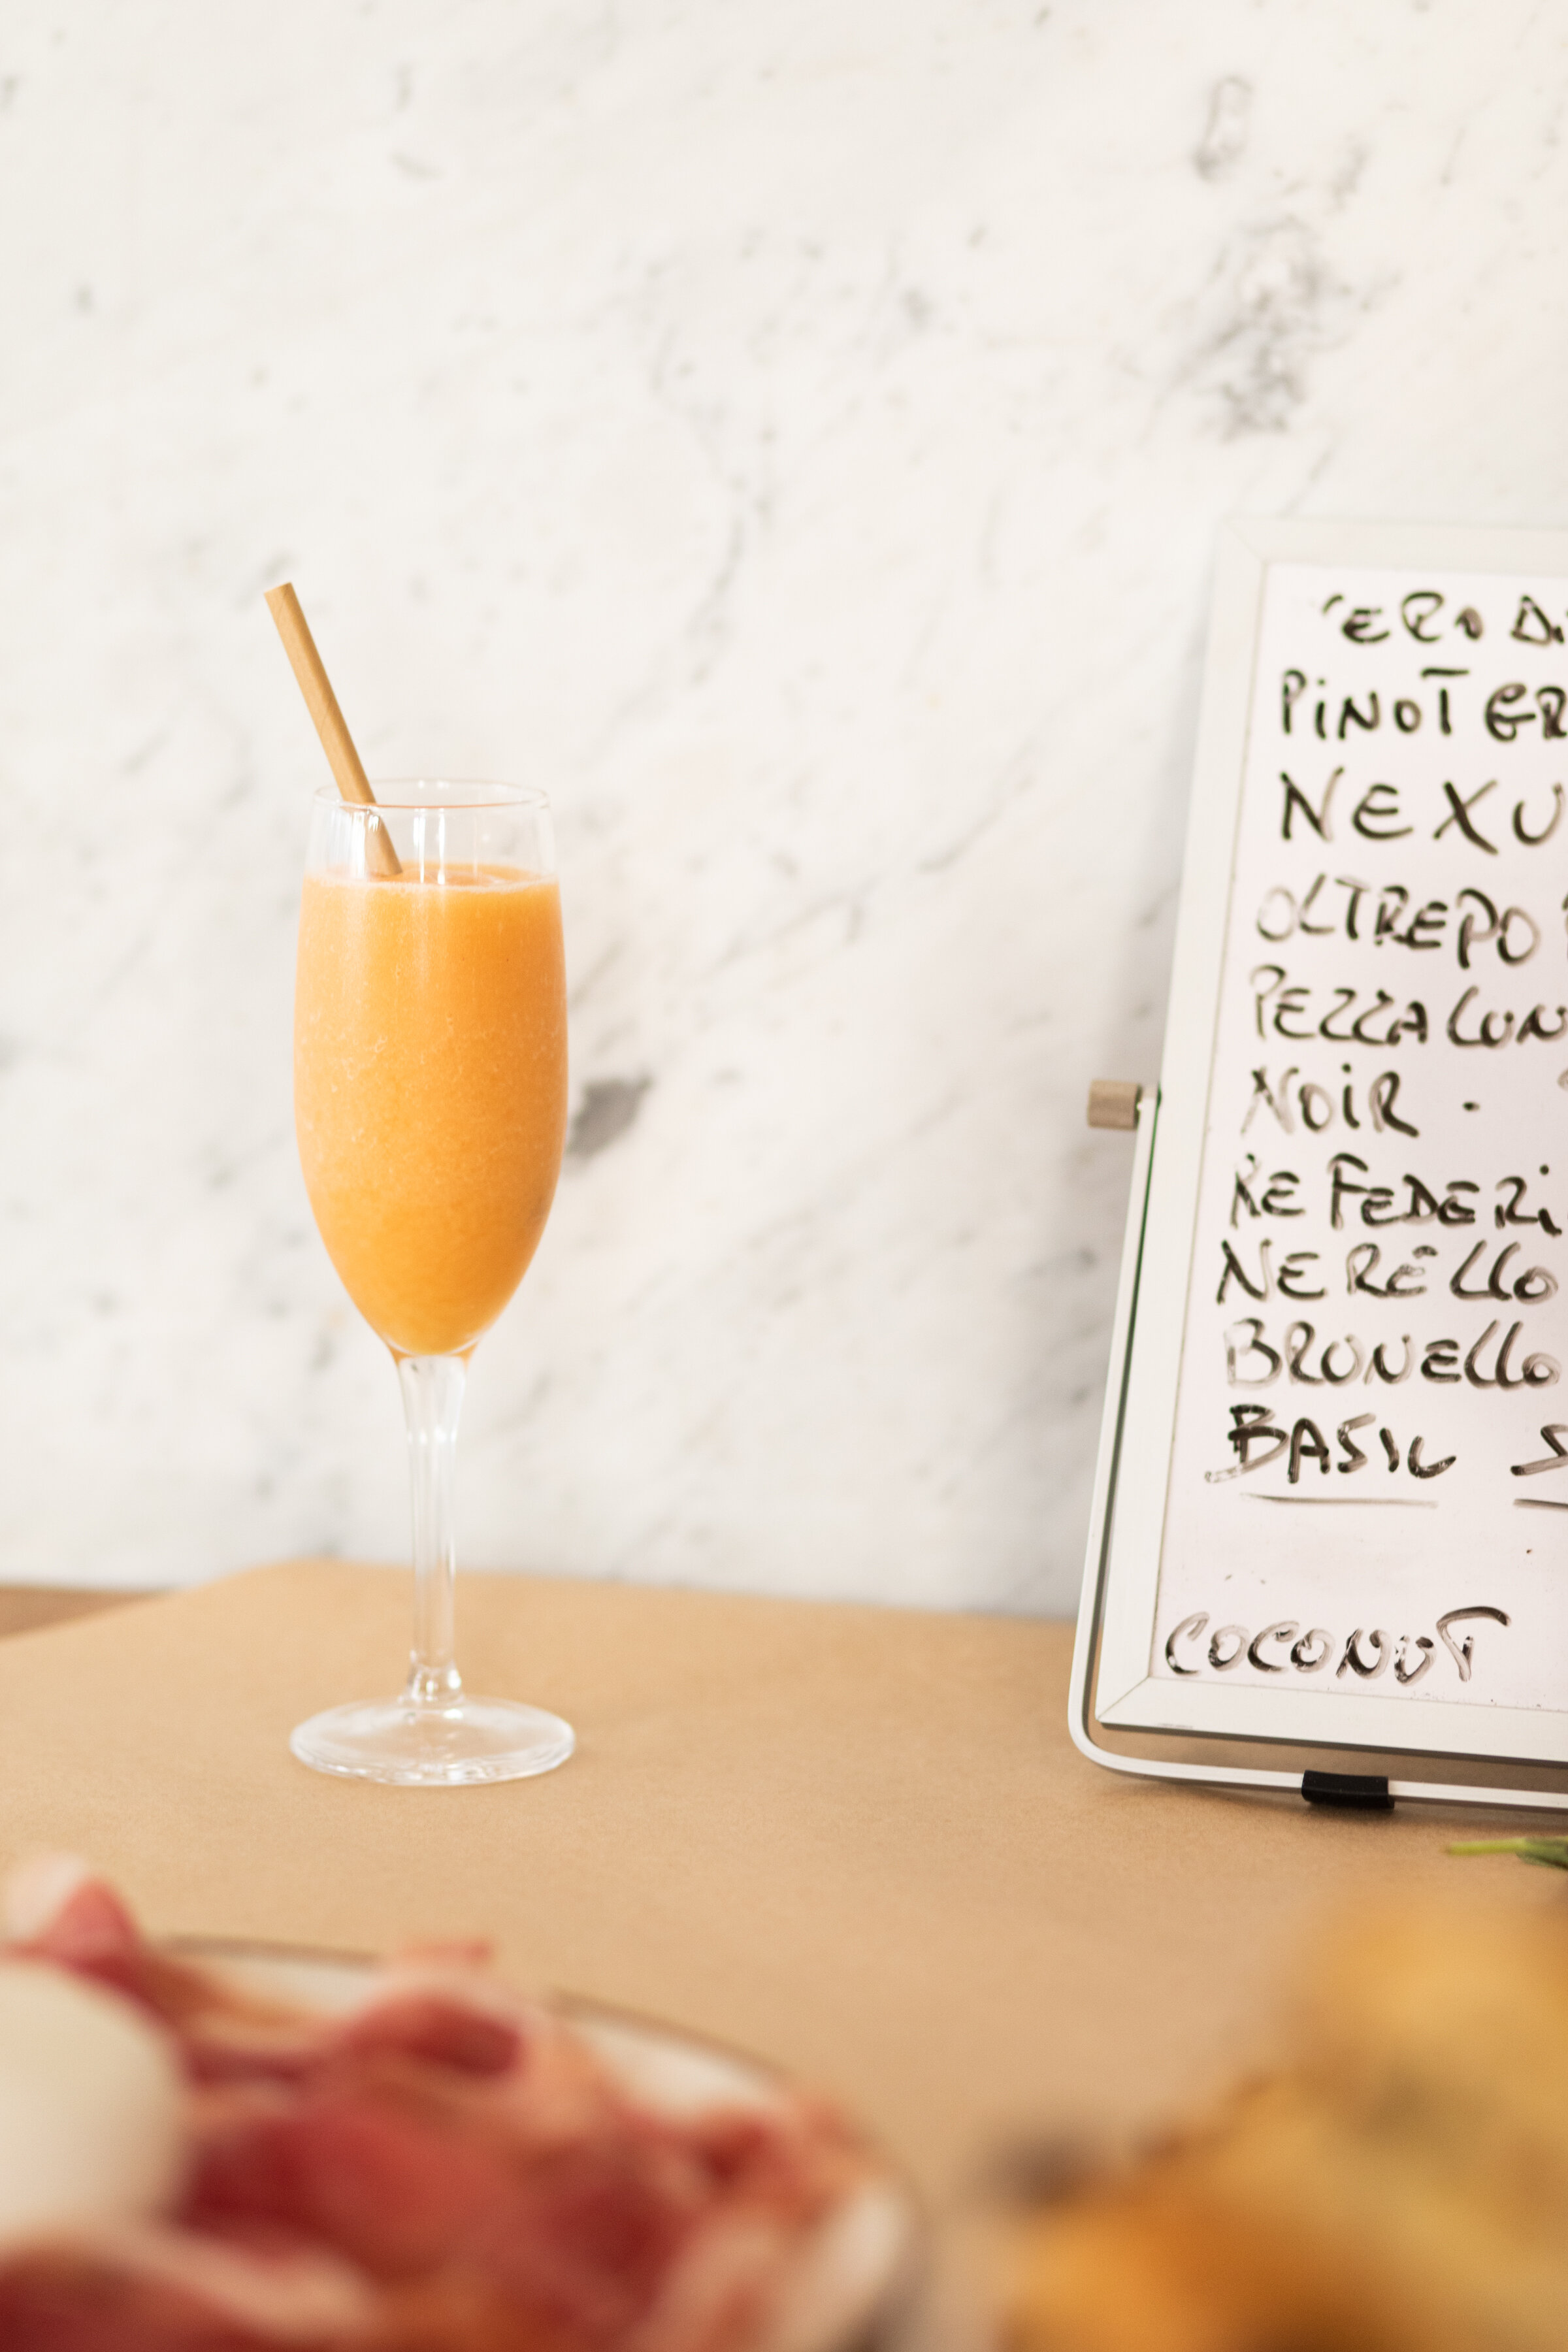 ERO D
PINOT GR
NEXU
OLTREPO
PEZZALUN
NOIR -
RE FEDERI
NERELLO
BRUNELLO
BASIL S
COCONUT